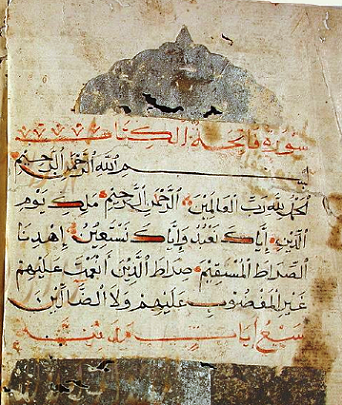 سورة فاتحة الكتاب
بسم الله الرحمن الرحيم
الحمد لله رب العالمين الرحمن الرحيم ملك يوم
الدين إياك نعبد وإياك نستعين إهدنا
الصراط المستقيم صراط الذين أنعمت عليهم
غير المغضوب عليهم ولا الضالين
سبع آيات مدنية